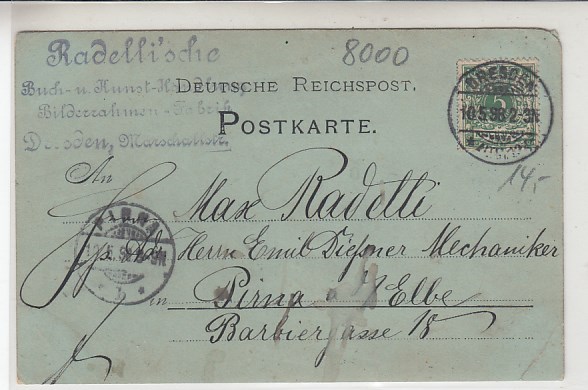 Radelli'sche
Buch- u. Kunst-Handlung,
Bilderrahmen-Fabrik
Dresden, Marschallstr.
8000
DEUTSCHE REICHSPOST.
POSTKARTE.
DRESDEN
10.5.98.2-3N
5
14,-
An
Max Radelli
Herrn Emil Dießner Mechaniker
in Pirna a/Elbe
Barbiergasse 18
PIRNA